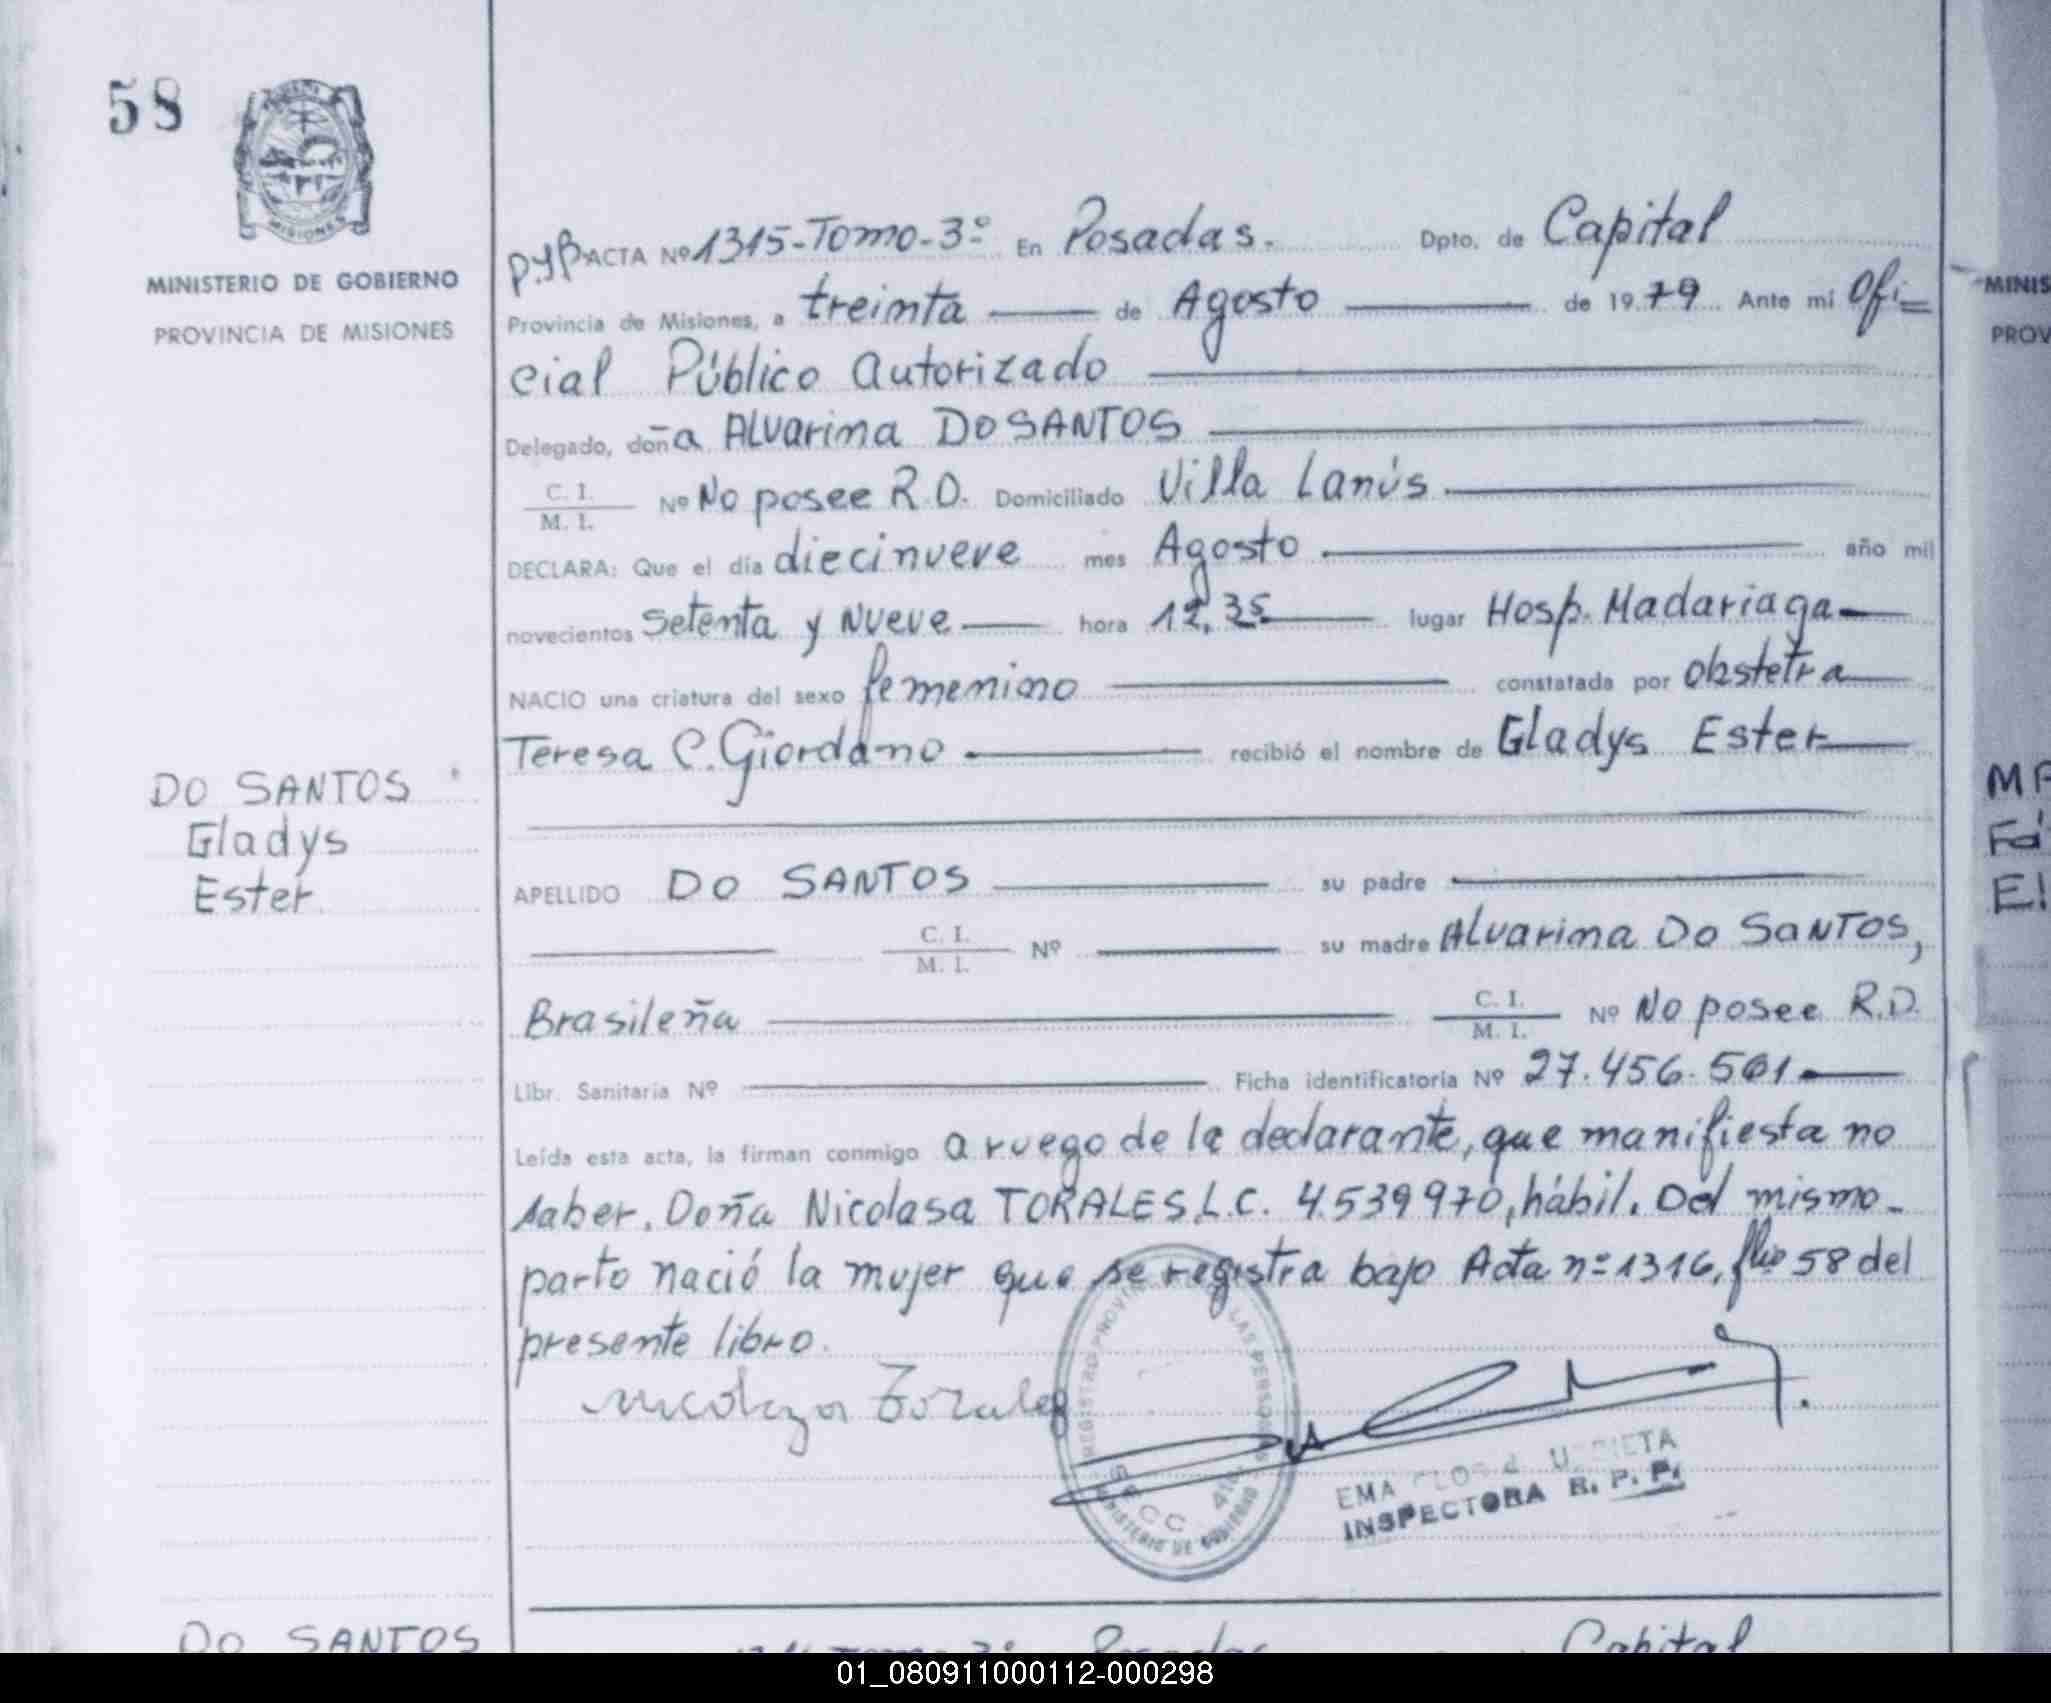 58
MISIONES
MINISTERIO DE GOBIERNO
PROVINCIA DE MISIONES
pyp ACTA Nº 1315-Tomo-3º En Posadas. Dpto. de Capital
Provincia de Misiones, a treinta de Agosto de 19 79 Ante mí Ofi=
cial Público Autorizado
Delegado, doña Alvarina DO SANTOS
C. I.
M. I. Nº No posee R.D. Domiciliado Villa Lanús
DECLARA: Que el día diecinueve mes Agosto año mil
novecientos setenta y nueve hora 12,35 lugar Hosp. Madariaga
NACIO una criatura del sexo femenino constatada por obstetra
Teresa C. Giordano recibió el nombre de Gladys Ester
DO SANTOS
Gladys
Ester
APELLIDO DO SANTOS su padre
C. I.
M. I. Nº su madre Alvarina Do SANTOS,
Brasileña C. I.
M. I. Nº No posee R.D.
Libr. Sanitaria Nº Ficha identificatoria Nº 27.456.501
Leída esta acta, la firman conmigo a ruego de la declarante, que manifiesta no
saber. Doña Nicolasa TORALES L.C. 4.539970, hábil. Del mismo
parto nació la mujer que se registra bajo Acta nº 1316, flio 58 del
presente libro.
Nicolaza Torales
REGISTRO PROVIN LAS PERSONAS
SECC 4ta.
MINISTERIO DE GOBIERNO
EMA
INSPECTORA R. P. P.
DO SANTOS
Tomo 3º Posadas Capital
MINIS
PROV
MA
Fá
El
01_080911000112-000298